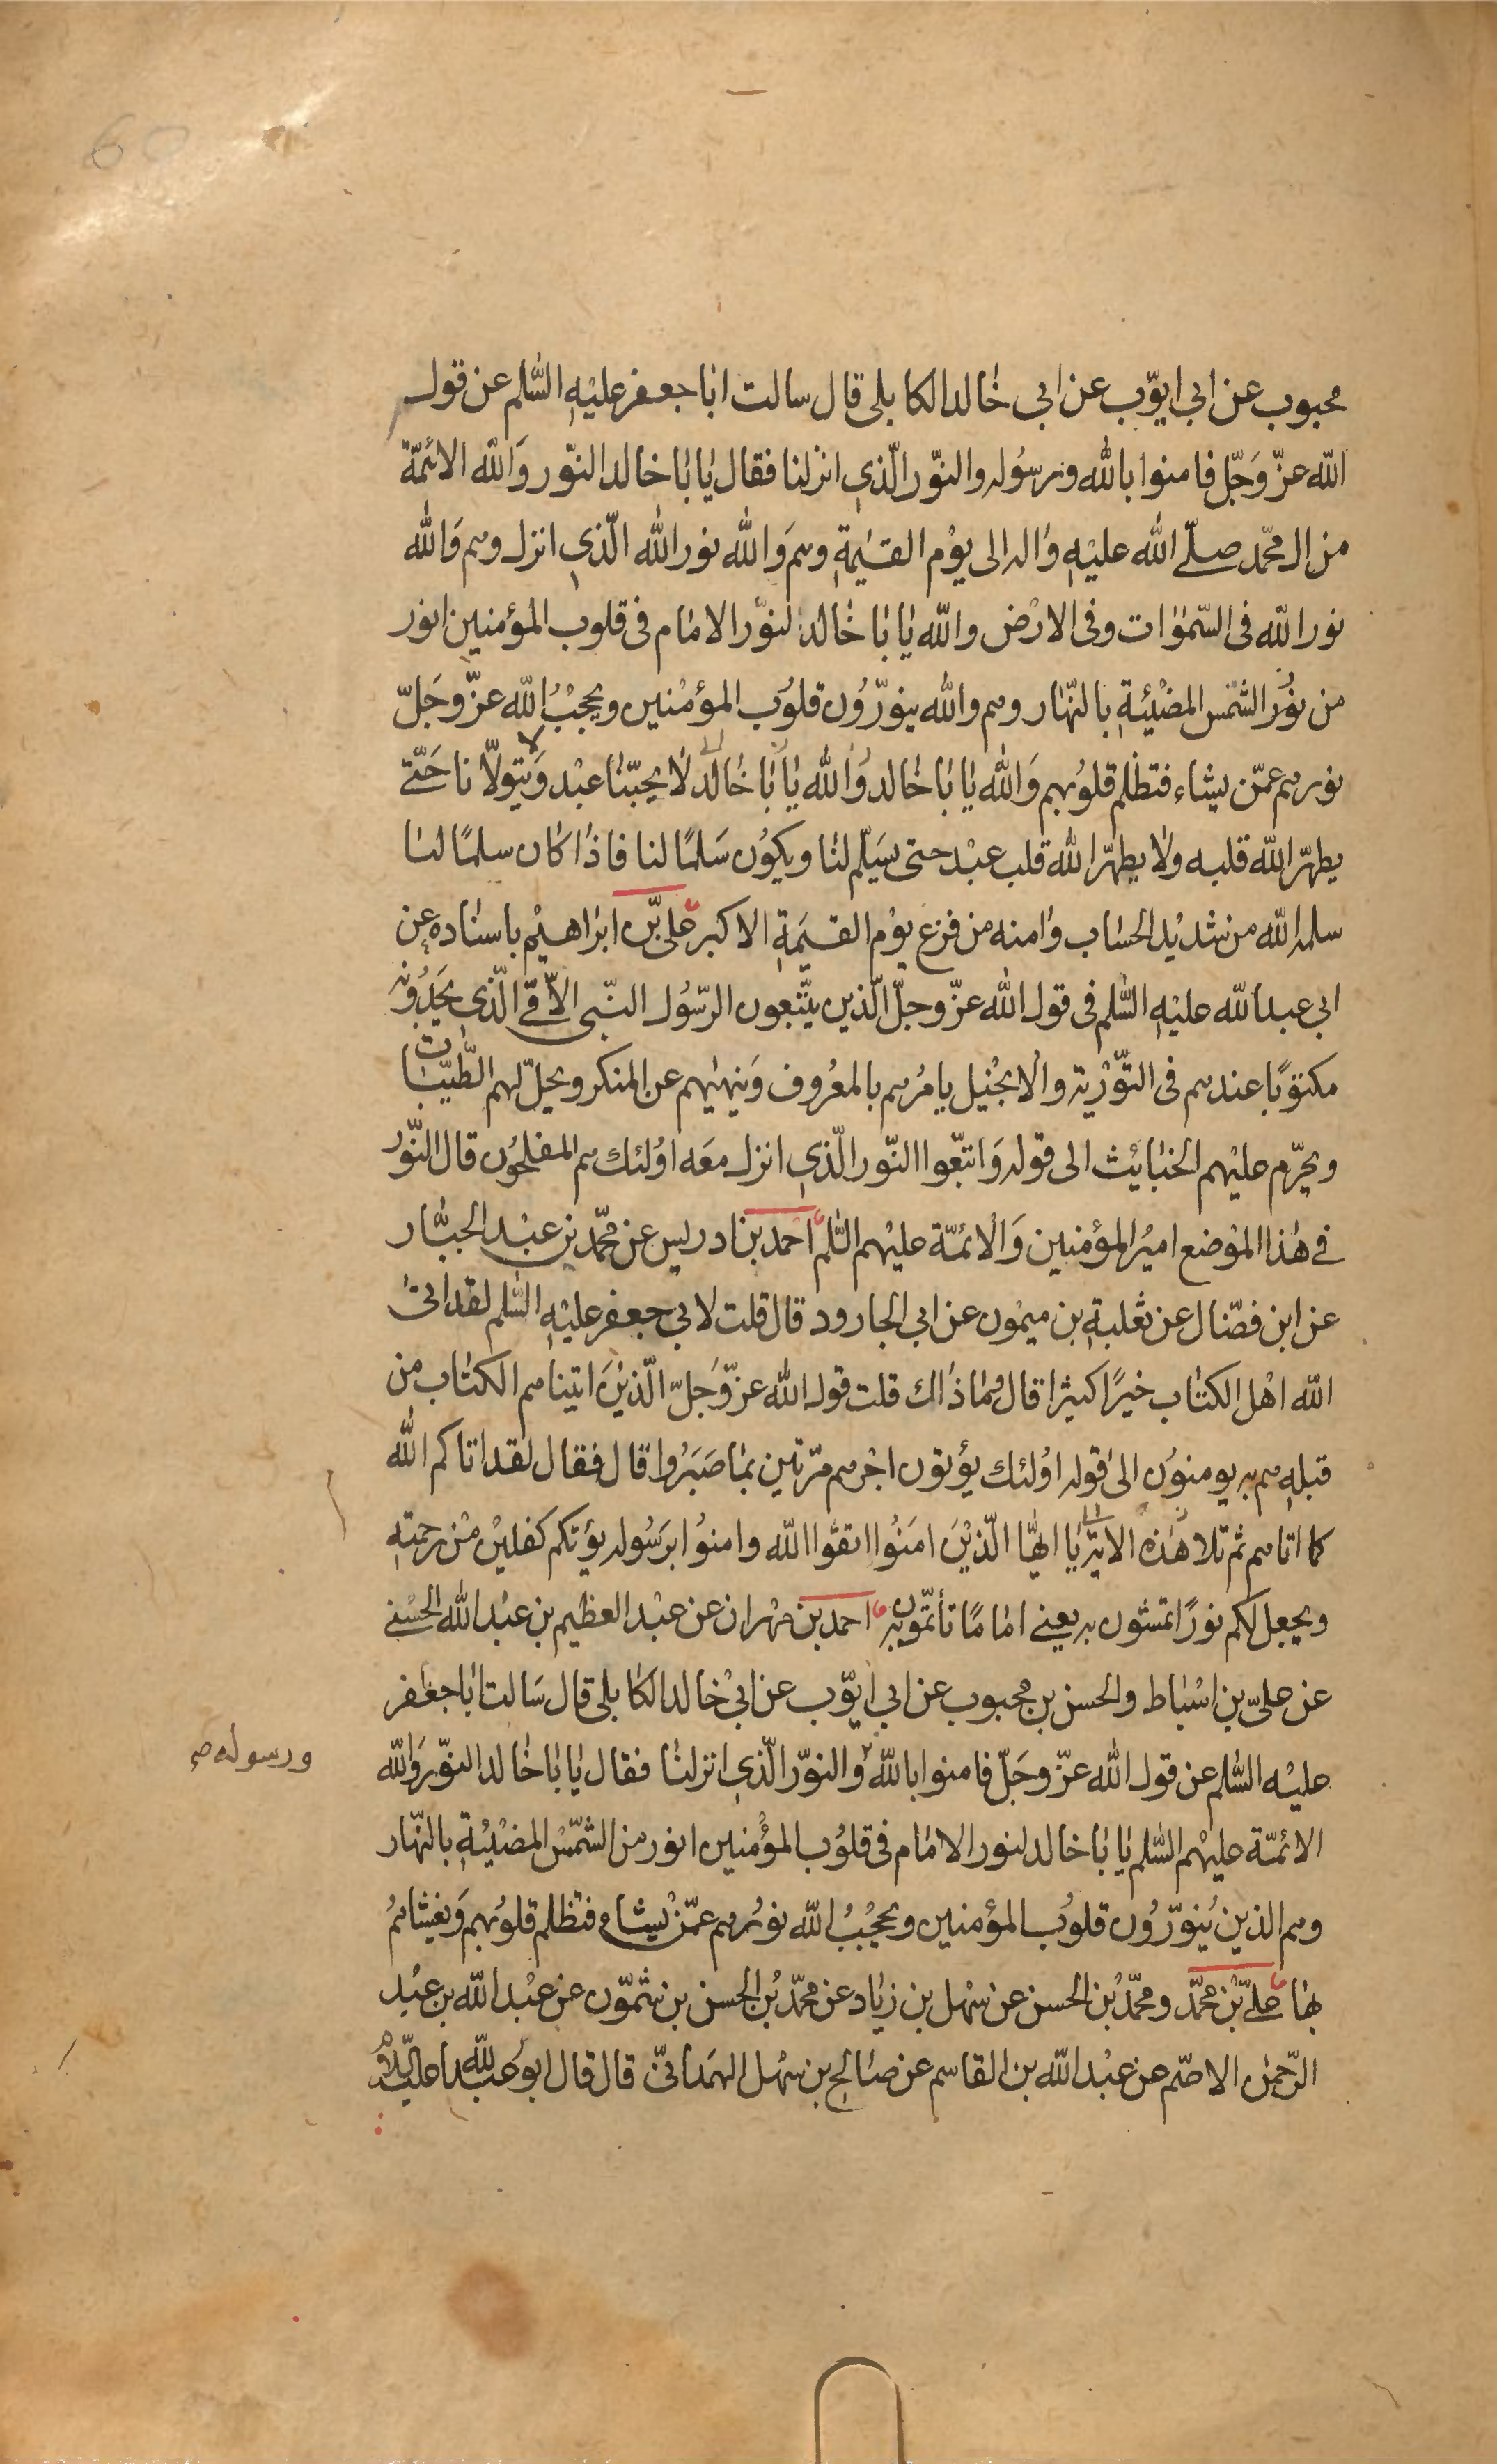 محبوب عن ابي ايّوب عن ابي خالد الكابلى قال سالت ابا جعفر عليْهِ السّلم عن قول
اللّه عزّ وَجّل فامنوا باللّه ورسُوله والنوّر الّذي انزلنا فقال يٰا بٰا خالد النوّر وَاللّه الائمّة
من ال محمّد صلّے اللّه عليْهِ وٰاله الى يوْم القيٰمةِ وهم وَاللّه نور اللّه الّذي انزل وهم وَاللّه
نور اللّه فى السّمٰوٰات وفى الارْض واللّه يٰا بٰا خٰالد لنوّر الامٰام فى قلوب المؤمنين انور
من نُوُر الشمْس المضْيئةِ بالنّهار وهم واللّه ينوّرُون قلوُب المؤمْنين ويحجْبُ اللّه عزّ وجَلّ
نورهم عمّن يشٰاء فتظلم قلوُبهم وَاللّه يٰا بٰا خٰالد وَاللّه يٰا بٰا خٰالد لٰا يحبّنٰا عبْد وَيتولّانا حَتّے
يطهّر اللّه قلبه ولٰا يطهّر اللّه قلب عبْد حتى سيَلّم لنٰا ويكوُن سَلمًا لنا فاذٰا كٰان سلمًا لنٰا
سلمه اللّه من شديْد الحسٰاب وٰامنه من فزع يوْم القيٰمَةِ الاكبر علىّ بْن ابرٰاهيْم باسنٰاده عن
ابي عبد اللّه عليْهِ السّلم فى قول اللّه عزّ وجلّ الّذين يتّبعون الرّسُول النّبى الاُمّے الّذي يجَدُونه
مكتوَبًا عندهم فى التوّرْية والْانجْيل يامُرهم بالمعرُوف وَينهٰيهم عن المنكر ويحلّ لهم الطّيّبات
ويحرّم عليْهم الخبٰايئث الى قوله وَاتبّعوا النّور الّذي انزل معَه اوُلئك هم المفلحوُن قال النّوُر
في هٰذا الموْضع اميُر المؤمنين وَالْائمّة عليْهم السّلم احمد بن ادريس عن محمّد بن عبْد الجبّٰار
عن ابن فضّال عن ثعلبةِ بن ميمْون عن ابي الجارود قال قلت لابي جعفر عليْهِ السّلم لقد اتىٰ
اللّه اهْل الكتٰاب خيرًا كثيرا قال ومٰا ذٰاك قلت قول اللّه عزّ وَجلّ الّذيْنَ اتينٰاهم الكتٰاب من
قبلهِ هم به يومنوُن الىٰ قوله اوُلئك يؤتون اجْرهم مرّتين بمٰا صَبَرُوا قال فقال لقد اتاكم اللّه
كما اتاهم ثم تلا هٰذه الاية يٰا ايهّا الّذيْنَ امَنُوا اتقوا اللّه وامنوُا برَسُوله يؤتكم كفليْن منْ رحمتهِ
ويجعل لكم نورًا تمشون به يعنے امٰامًا تأتمّون به احمد بن مهران عن عبْد العظيم بن عبْد اللّه الحسْنے
عن علىّ بن اسْباط والحسن بن محبوب عن ابي ايّوب عن ابيْ خالد الكٰابلى قال سَالت ابٰا جعْفر
عليْه السّلم عن قول اللّه عزّ وجَلّ فامنوا باللّه والنوّر الّذي انزلنٰا فقال يٰا بٰا خٰالد النوّر وَاللّه
ورسوله صح
الائمّة عليهْم السّلم يٰا بٰا خالد لنور الامٰام فى قلوُب المؤْمنين انور من الشمّسْ المضْيئةِ بالنّهٰار
وهم الذين يُنوّرُون قلوُب المؤمنين ويحجُبُ اللّه نورُهم عمّن يْشٰاء فتظلم قلوُبهم وَيغشٰاهمُ
بهٰا علىّ بْن محمّد ومحمّدُ بْن الحسن عن سهْل بن زيٰاد عن محمّدُ بْن الحسن بن شمّون عن عبْد اللّه بن عبْد
الرّحمٰن الاصّم عن عبْد اللّه بن القاسم عن صٰالح بن سهْل الهمْدانىّ قال قال ابو عبد اللّه عليه السّلام